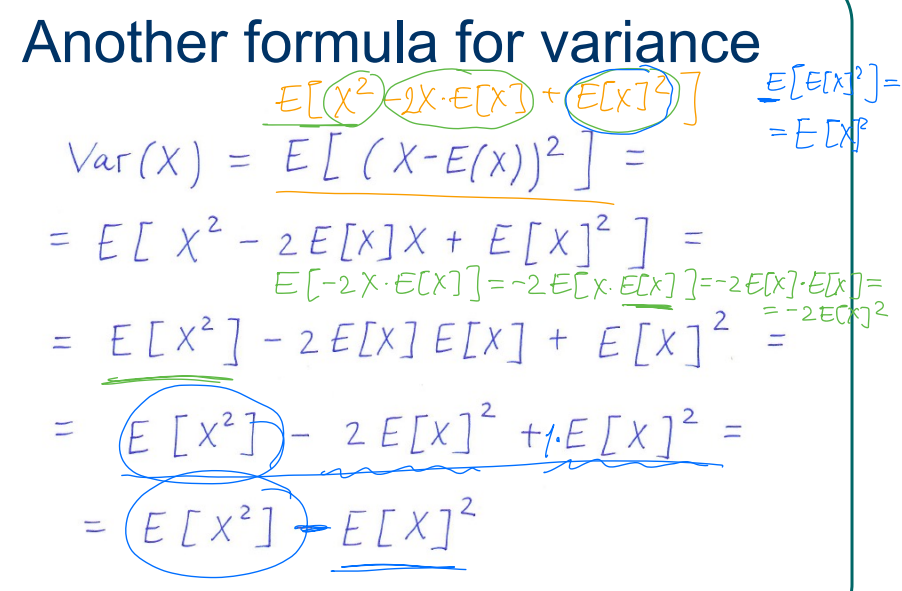 Another formula for variance
E[X² -2X·E[X] + E[X]²]
E[E[X]²]=
= E[X]²
Var(X) = E[(X-E(X))²] =
= E[X² - 2E[X]X + E[X]²] =
E[-2X·E[X]]=-2E[X·E[X]]=-2E[X]·E[X]=
=-2E[X]²
= E[X²] - 2E[X]E[X] + E[X]² =
= E[X²] - 2E[X]² + 1·E[X]² =
= E[X²] - E[X]²